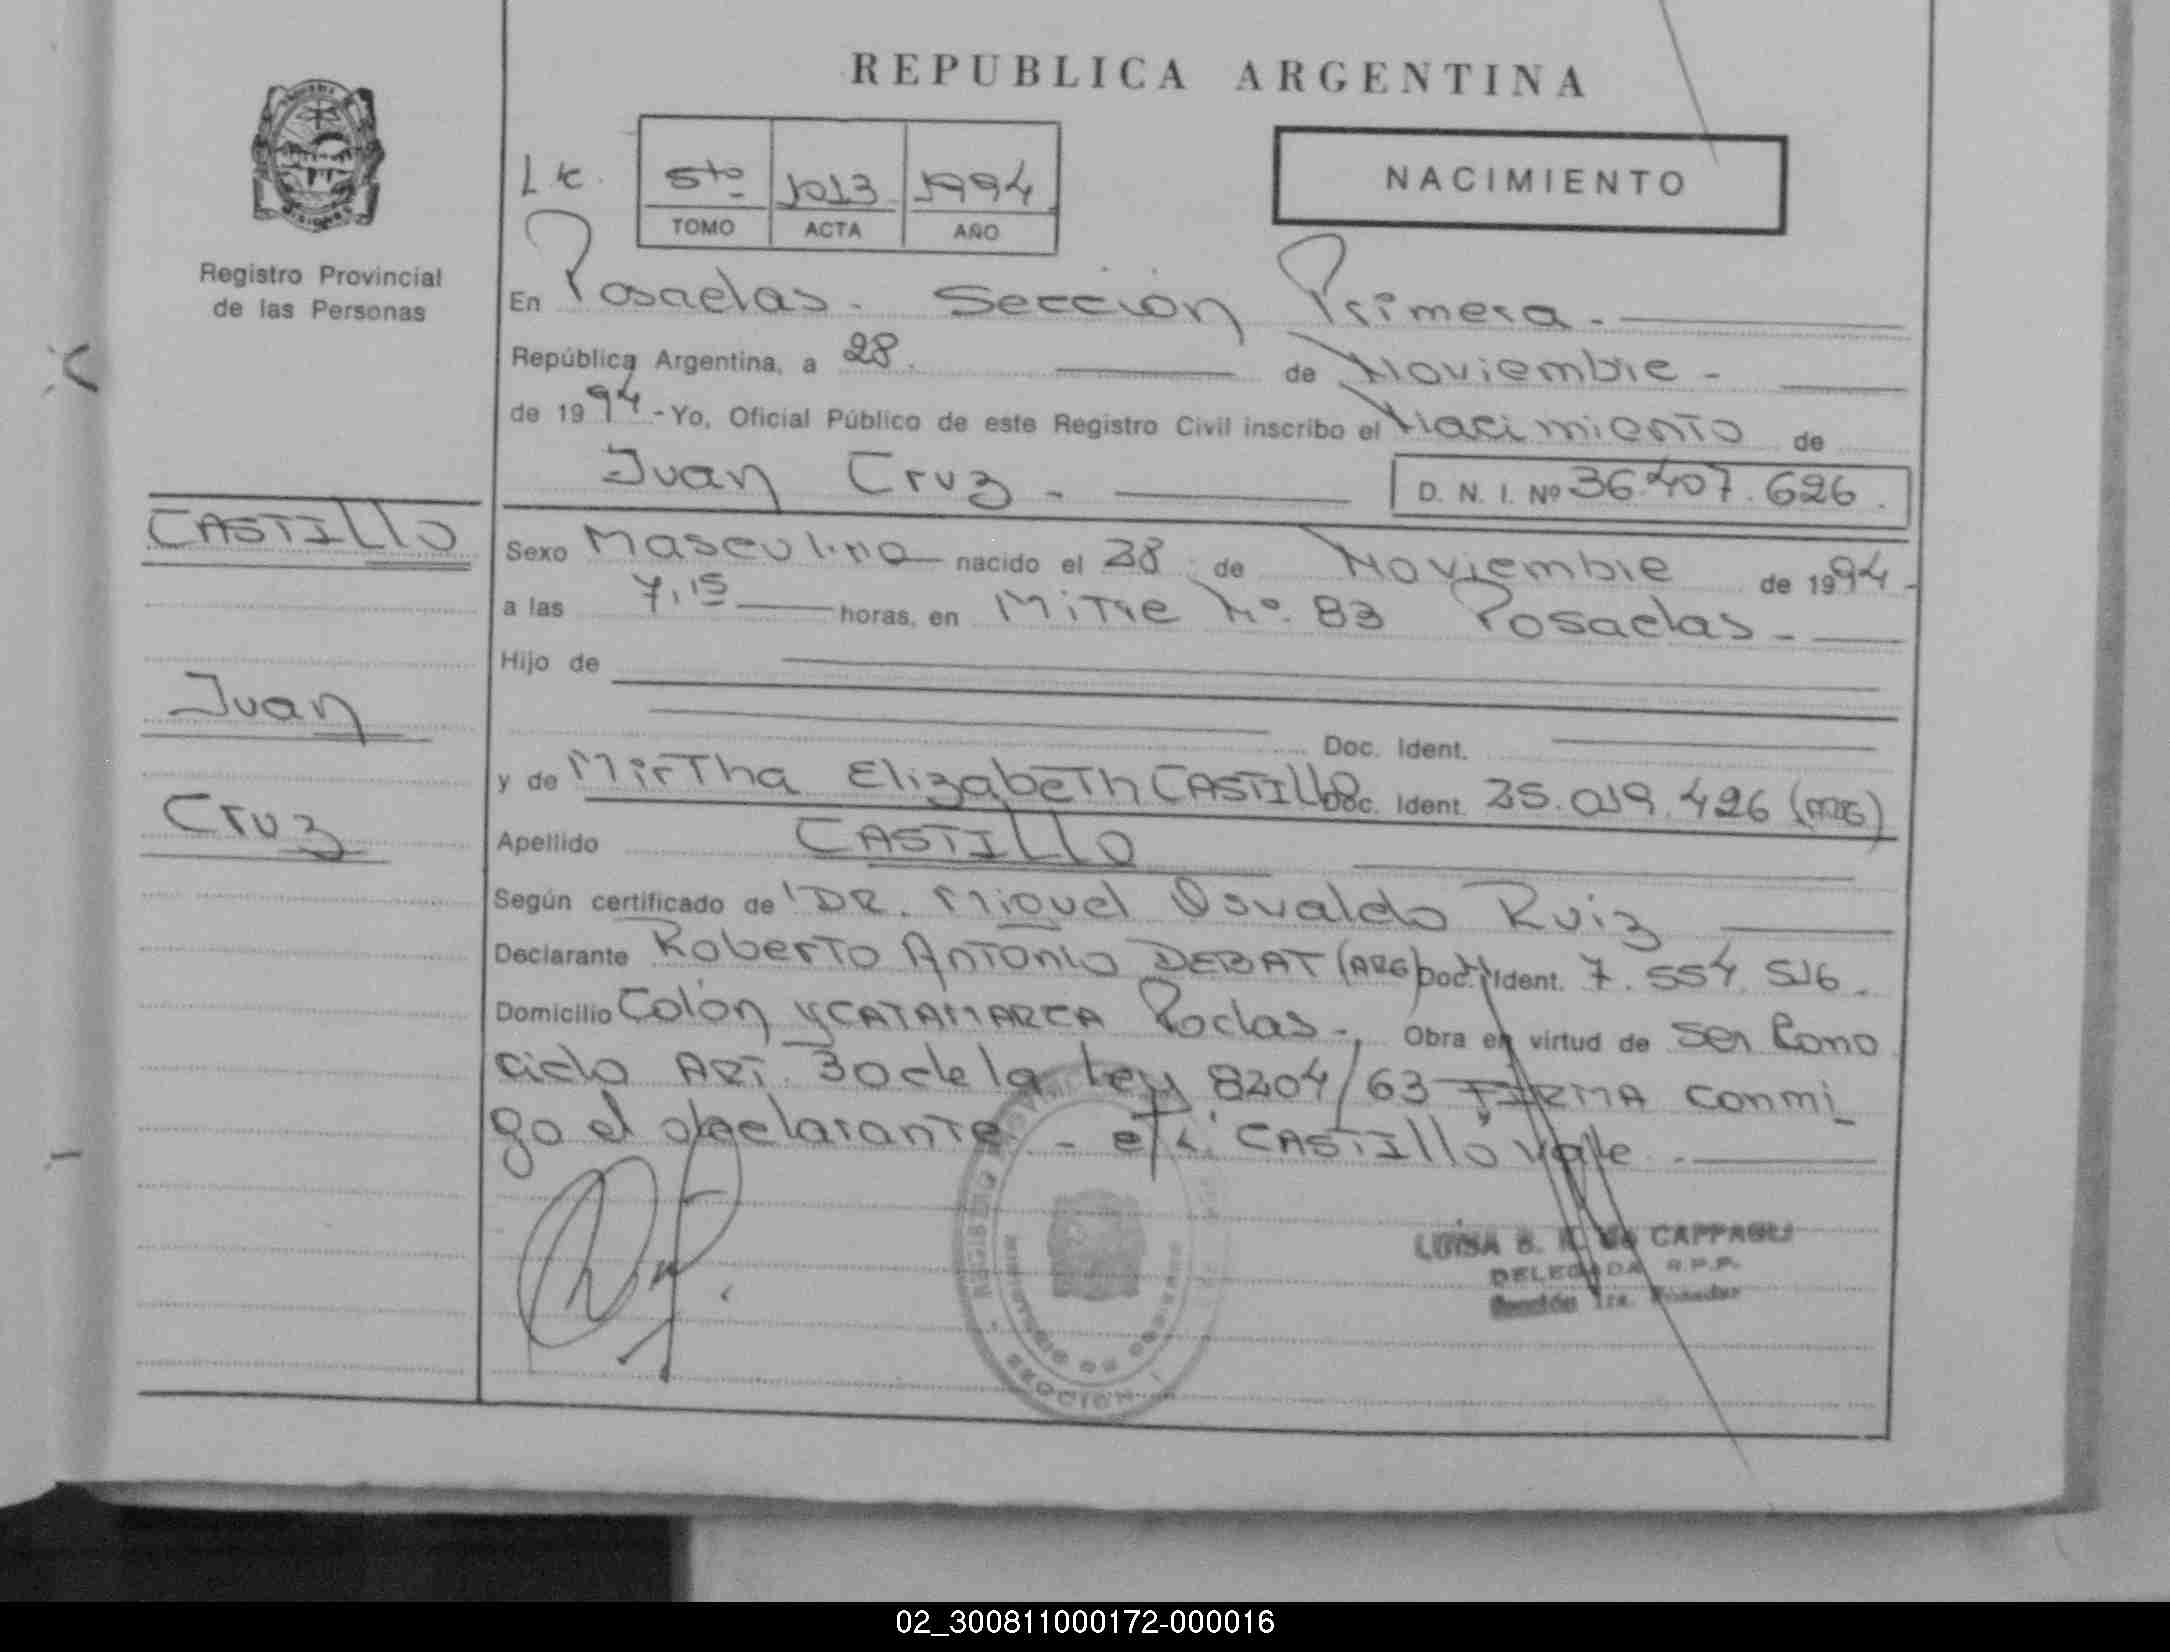 REPUBLICA ARGENTINA
NACIMIENTO
Registro Provincial
de las Personas
5to 1013 1994
TOMO ACTA AÑO
En Posadas. Sección Primera.
República Argentina, a 28. de Noviembre -
de 1994 - Yo, Oficial Público de este Registro Civil inscribo el Nacimiento de
Juan Cruz - D. N. I. Nº 36.407.626.
CASTIllo
Juan
Cruz
Sexo Masculino nacido el 28 de Noviembre de 1994 -
a las 7,15 horas, en Mitre Nº. 83 Posadas -
Hijo de
Doc. Ident.
y de Mirtha Elizabeth CASTIllo Doc. Ident. 25.019.426 (ARG)
Apellido CASTIllo
Según certificado de DR. Miguel Osvaldo Ruiz
Declarante Roberto Antonio DEBAT (ARG) Doc. Ident. 7.554.516.
Domicilio Colón y CATAMARCA Pdas -. Obra en virtud de ser Cono
cido ART. 30 de la Ley 8204/63 FIRMA conmi_
go el declarante - e/l: CASTIllo vale -
REGISTRO
MINISTERIO DE GOBIERNO
SECCION 1
LUISA B. de CAPPAGLI
DELEGADA R.P.P.
Sección 1ra. Posadas
02_300811000172-000016